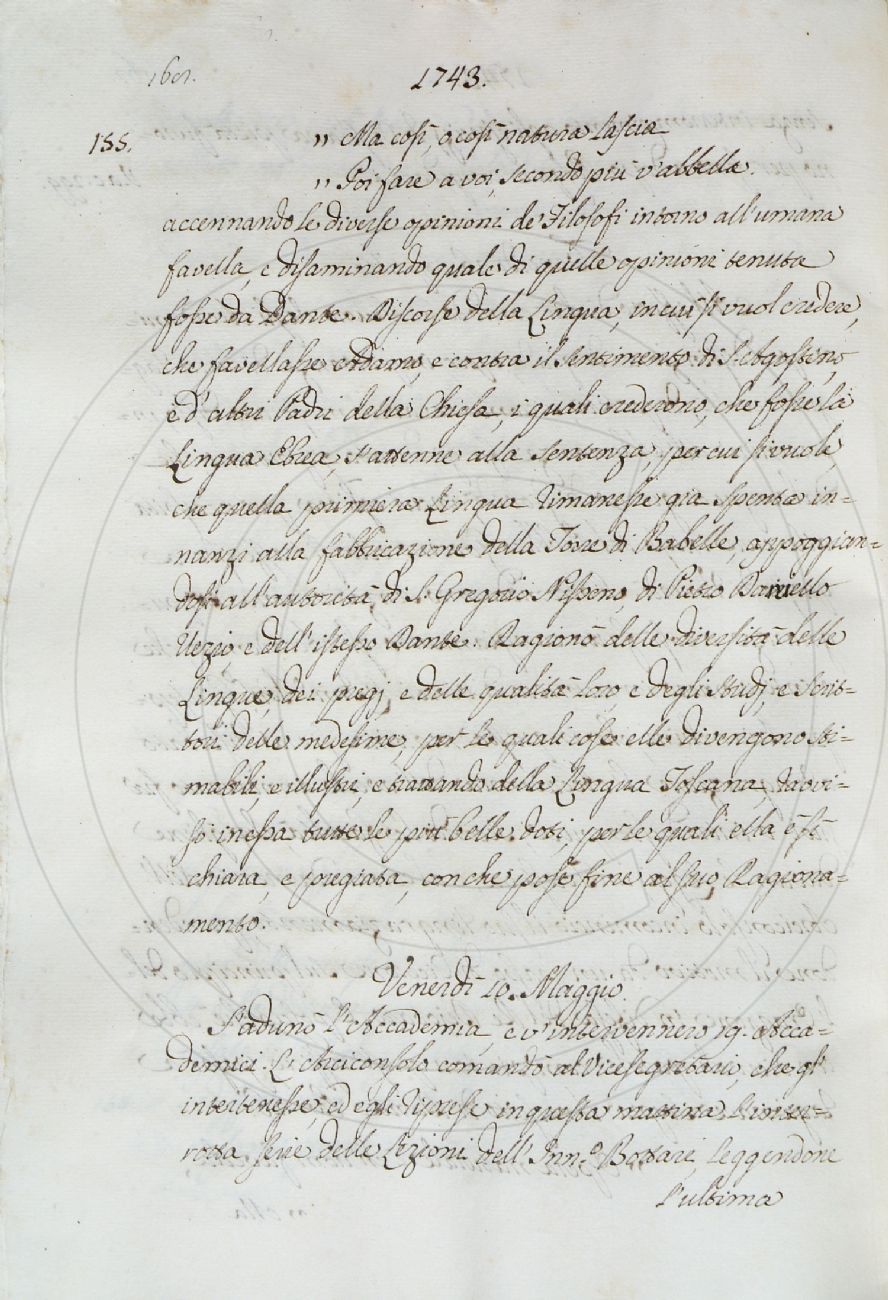 160.
1743.
155.
" Ma così, o così natura lascia
" Poi fare a voi, secondo più v'abbella.
accennando le diverse opinioni de' Filosofi intorno all'umana
favella, e disaminando quale di quelle opinioni tenuta
fosse da Dante. Discorse della Lingua, in cui si vuol credere,
che favellasse Adamo, e contra il sentimento di S. Agostino,
e d'altri Padri della Chiesa, i quali crederono, che fosse la
Lingua Ebrea, s'attenne alla sentenza, per cui si vuole,
che quella primiera Lingua rimanesse già spenta in=
nanzi alla fabbricazione della Torre di Babelle, appoggian=
dosi all'autorità di S. Gregorio Nisseno, di Pietro Daniello
Uezio, e dell'istesso Dante. Ragionò delle diversità delle
Lingue, dei pregj, e delle qualità loro, e degli studj, e Scrit=
tori delle medesime, per le quali cose elle divengono sti=
mabili, e illustri, e trattando della Lingua Toscana, ravvi=
sò in essa tutte le più belle doti, per le quali ella è sì
chiara, e pregiata, con che pose fine al suo Ragiona=
mento.
Venerdì 10. Maggio.
S'adunò l'Accademia, e v'intervennero 19. Acca=
demici. L'Arciconsolo comandò al Vicesegretario, che gl'
intertenesse, ed egli riprese in questa mattina l'inter=
rotta serie delle Lezioni dell'Inn.º Bottari, leggendone
l'ultima